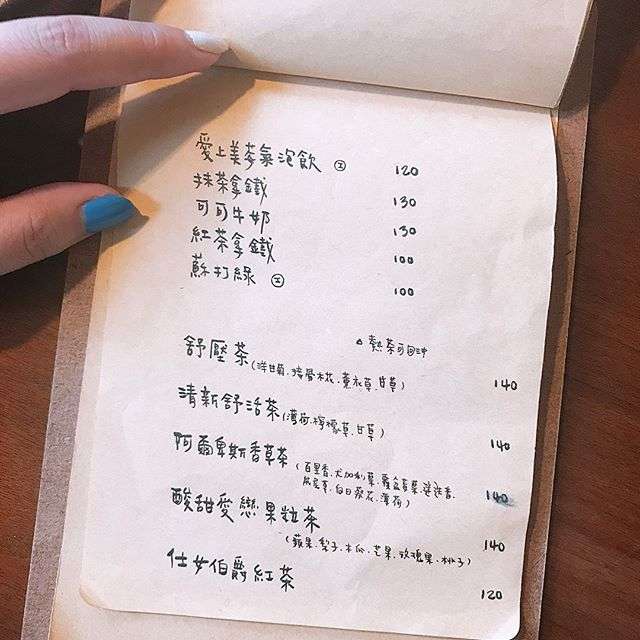 愛上美麥氣泡飲 ㊣ 120
抹茶拿鐵 130
可可牛奶 130
紅茶拿鐵 100
蘇打綠 100
△熱茶可回沖
舒壓茶(洋甘菊、接骨木花、薰衣草、甘草) 140
清新舒活茶(薄荷、檸檬草、甘草) 140
阿爾卑斯香草茶(百里香、尤加利草、覆盆莓葉、迷迭香、
白日葵花、薄荷) 140
酸甜愛戀果粒茶 140
(蘋果、梨子、木瓜、芒果、玫瑰果、桃子)
仕女伯爵紅茶 120